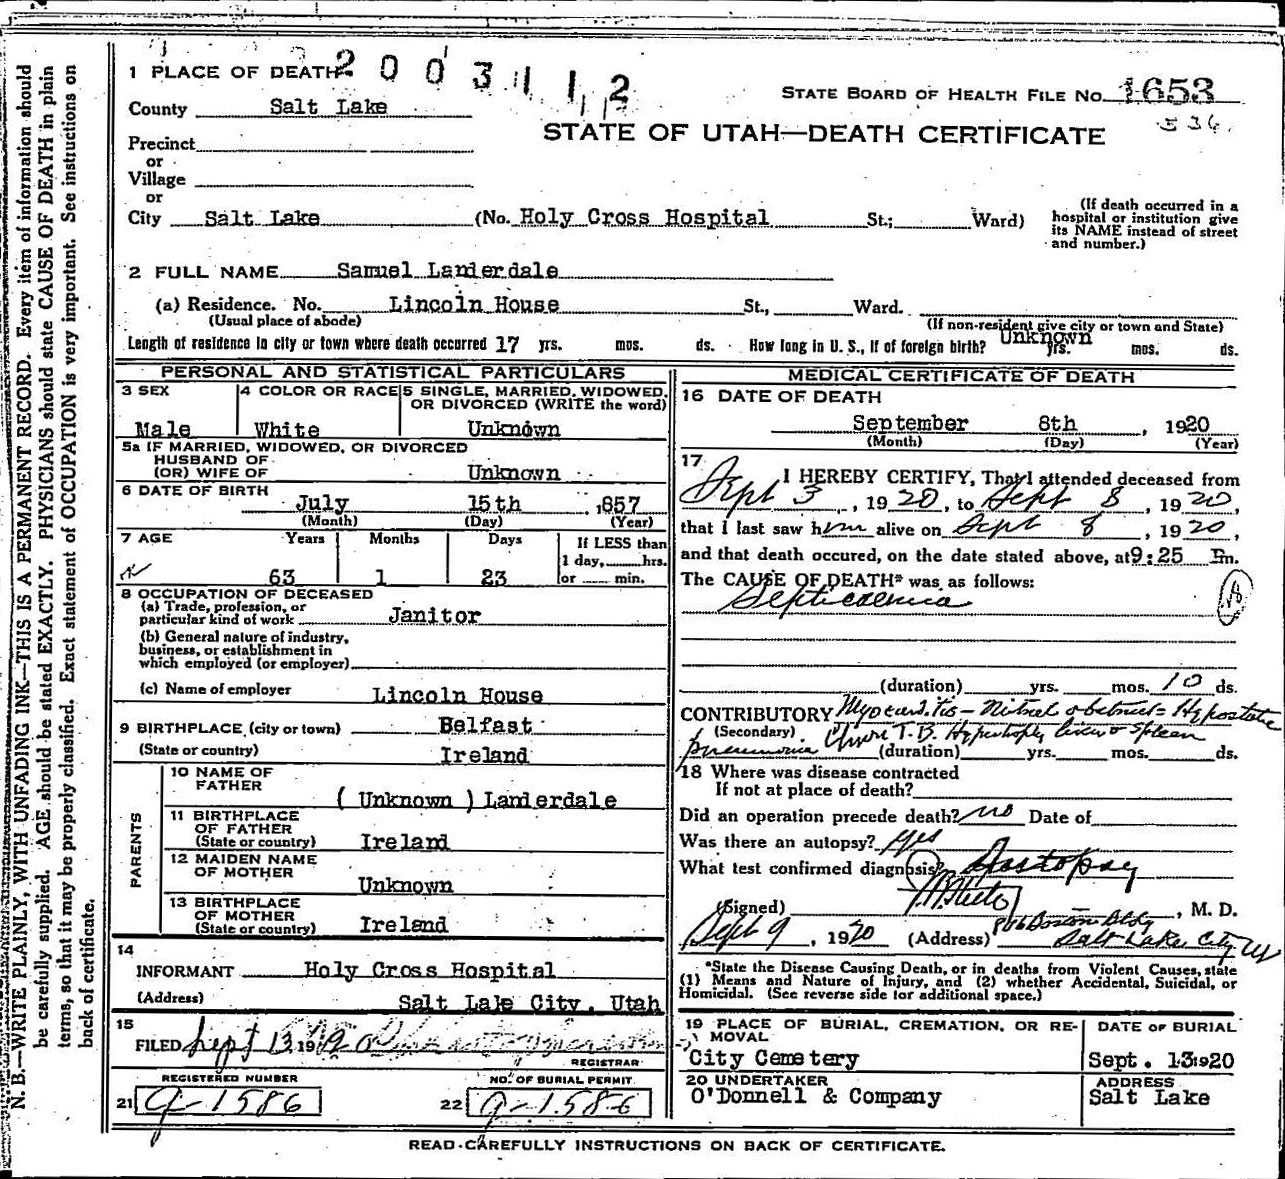 2003112
1 PLACE OF DEATH
STATE BOARD OF HEALTH FILE No. 1653
County Salt Lake
536
STATE OF UTAH—DEATH CERTIFICATE
Precinct
or
Village
or
City Salt Lake (No. Holy Cross Hospital St.; Ward)
(If death occurred in a hospital or institution give its NAME instead of street and number.)
2 FULL NAME Samuel Landerdale
(a) Residence. No. Lincoln House St., Ward.
(Usual place of abode) (If non-resident give city or town and State)
Length of residence in city or town where death occurred 17 yrs. mos. ds. How long in U. S., if of foreign birth? Unknown yrs. mos. ds.
PERSONAL AND STATISTICAL PARTICULARS
3 SEX
Male
4 COLOR OR RACE
White
5 SINGLE, MARRIED, WIDOWED, OR DIVORCED (WRITE the word)
Unknown
5a IF MARRIED, WIDOWED, OR DIVORCED
HUSBAND OF
(OR) WIFE OF Unknown
6 DATE OF BIRTH
July 15th 1857
(Month) (Day) (Year)
7 AGE Years Months Days If LESS than
1 day, hrs.
63 1 23 or min.
8 OCCUPATION OF DECEASED
(a) Trade, profession, or
particular kind of work Janitor
(b) General nature of industry,
business, or establishment in
which employed (or employer)
(c) Name of employer Lincoln House
9 BIRTHPLACE (city or town) Belfast
(State or country) Ireland
PARENTS
10 NAME OF
FATHER (Unknown) Landerdale
11 BIRTHPLACE
OF FATHER
(State or country) Ireland
12 MAIDEN NAME
OF MOTHER Unknown
13 BIRTHPLACE
OF MOTHER
(State or country) Ireland
14
INFORMANT Holy Cross Hospital
(Address) Salt Lake City, Utah
15
FILED Sept 13, 19
REGISTRAR
REGISTERED NUMBER NO. OF BURIAL PERMIT
21 G-1586 22 G-1586
MEDICAL CERTIFICATE OF DEATH
16 DATE OF DEATH
September 8th, 1920
(Month) (Day) (Year)
17
I HEREBY CERTIFY, That I attended deceased from
Sept 3, 1920, to Sept 8, 1920,
that I last saw him alive on Sept 8, 1920,
and that death occured, on the date stated above, at 9:25 Pm.
The CAUSE OF DEATH* was as follows:
Septicaemia
(duration) yrs. mos. 10 ds.
CONTRIBUTORY Myocarditis - Mitral obstruct- Hypostatic
(Secondary) T. B. Hypertrophy liver & Spleen
pneumonia (duration) yrs. mos. ds.
18 Where was disease contracted
If not at place of death?
Did an operation precede death? no Date of
Was there an autopsy? yes
What test confirmed diagnosis? Autopsy
(Signed) , M. D.
Sept 9, 1920 (Address) Boston Bldg
Salt Lake City Ut
*State the Disease Causing Death, or in deaths from Violent Causes, state
(1) Means and Nature of Injury, and (2) whether Accidental, Suicidal, or
Homicidal. (See reverse side for additional space.)
19 PLACE OF BURIAL, CREMATION, OR REMOVAL
City Cemetery
DATE OF BURIAL
Sept. 13 1920
20 UNDERTAKER
O'Donnell & Company
ADDRESS
Salt Lake
READ CAREFULLY INSTRUCTIONS ON BACK OF CERTIFICATE.
N. B.—WRITE PLAINLY, WITH UNFADING INK—THIS IS A PERMANENT RECORD. Every item of information should
be carefully supplied. AGE should be stated EXACTLY. PHYSICIANS should state CAUSE OF DEATH in plain
terms, so that it may be properly classified. Exact statement of OCCUPATION is very important. See instructions on
back of certificate.